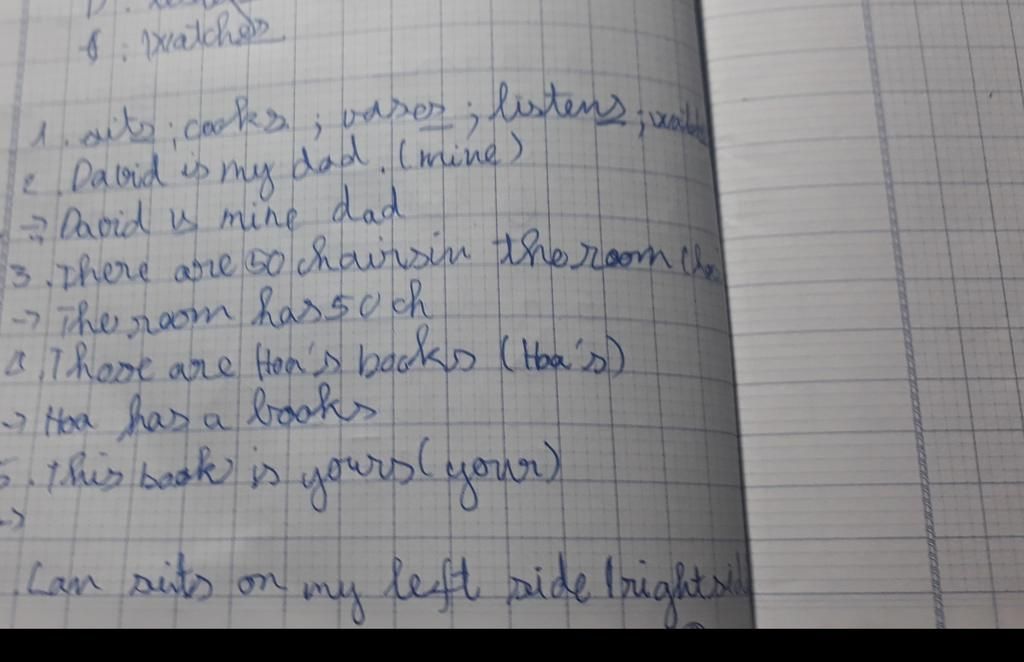 8 : watches
1. sits ; cooks ; vases ; listens ;
2. David is my dad. (mine)
=> David is mine dad
3. There are 50 chairs in the room
-> The room has 50 ch
4. Those are Hoa's books (Hoa's)
-> Hoa has a books
5. This book is yours (your)
->
Lan sits on my left side / right